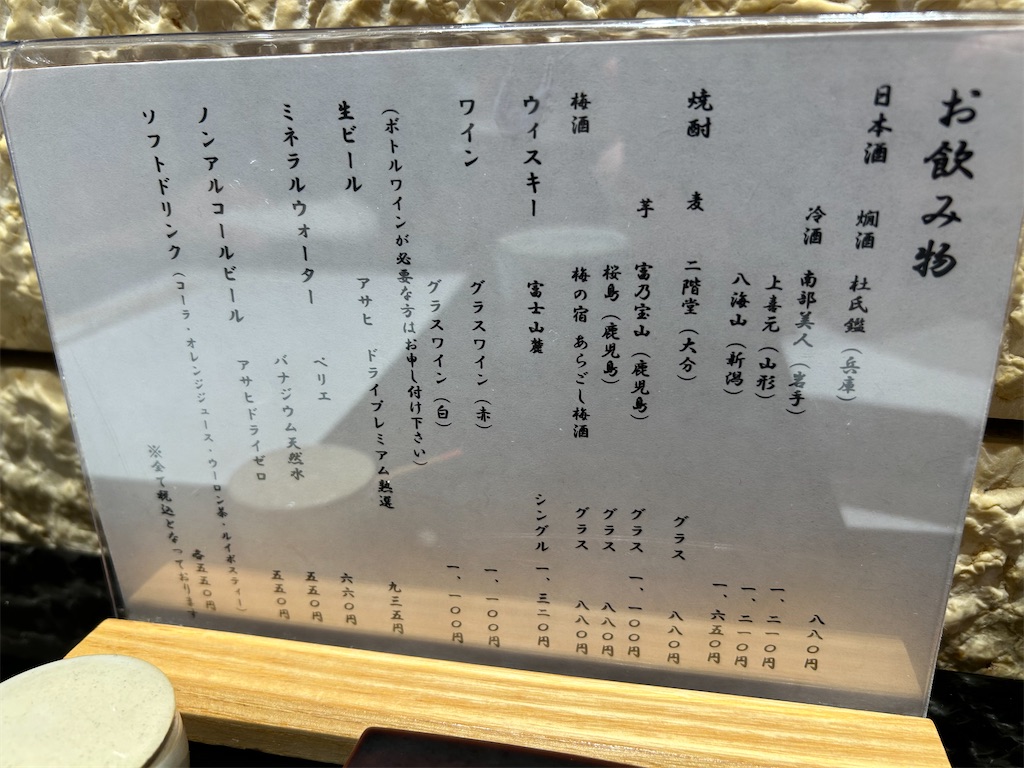 お飲み物
日本酒 燗酒 杜氏鑑（兵庫） 八八〇円
冷酒 南部美人（岩手） 一、二一〇円
上喜元（山形） 一、二一〇円
八海山（新潟） 一、六五〇円
焼酎 麦 二階堂（大分） グラス 八八〇円
芋 富乃宝山（鹿児島） グラス 一、一〇〇円
桜島（鹿児島） グラス 八八〇円
梅酒 梅の宿 あらごし梅酒 グラス 八八〇円
ウィスキー 富士山麓 シングル 一、三二〇円
ワイン グラスワイン（赤） 一、一〇〇円
グラスワイン（白） 一、一〇〇円
（ボトルワインが必要な方はお申し付け下さい）
生ビール アサヒ ドライプレミアム熟選 九三五円
ミネラルウォーター ペリエ 六六〇円
バナジウム天然水 五五〇円
ノンアルコールビール アサヒドライゼロ 五五〇円
ソフトドリンク（コーラ・オレンジジュース・ウーロン茶・ルイボスティー） 各五五〇円
※全て税込となっております